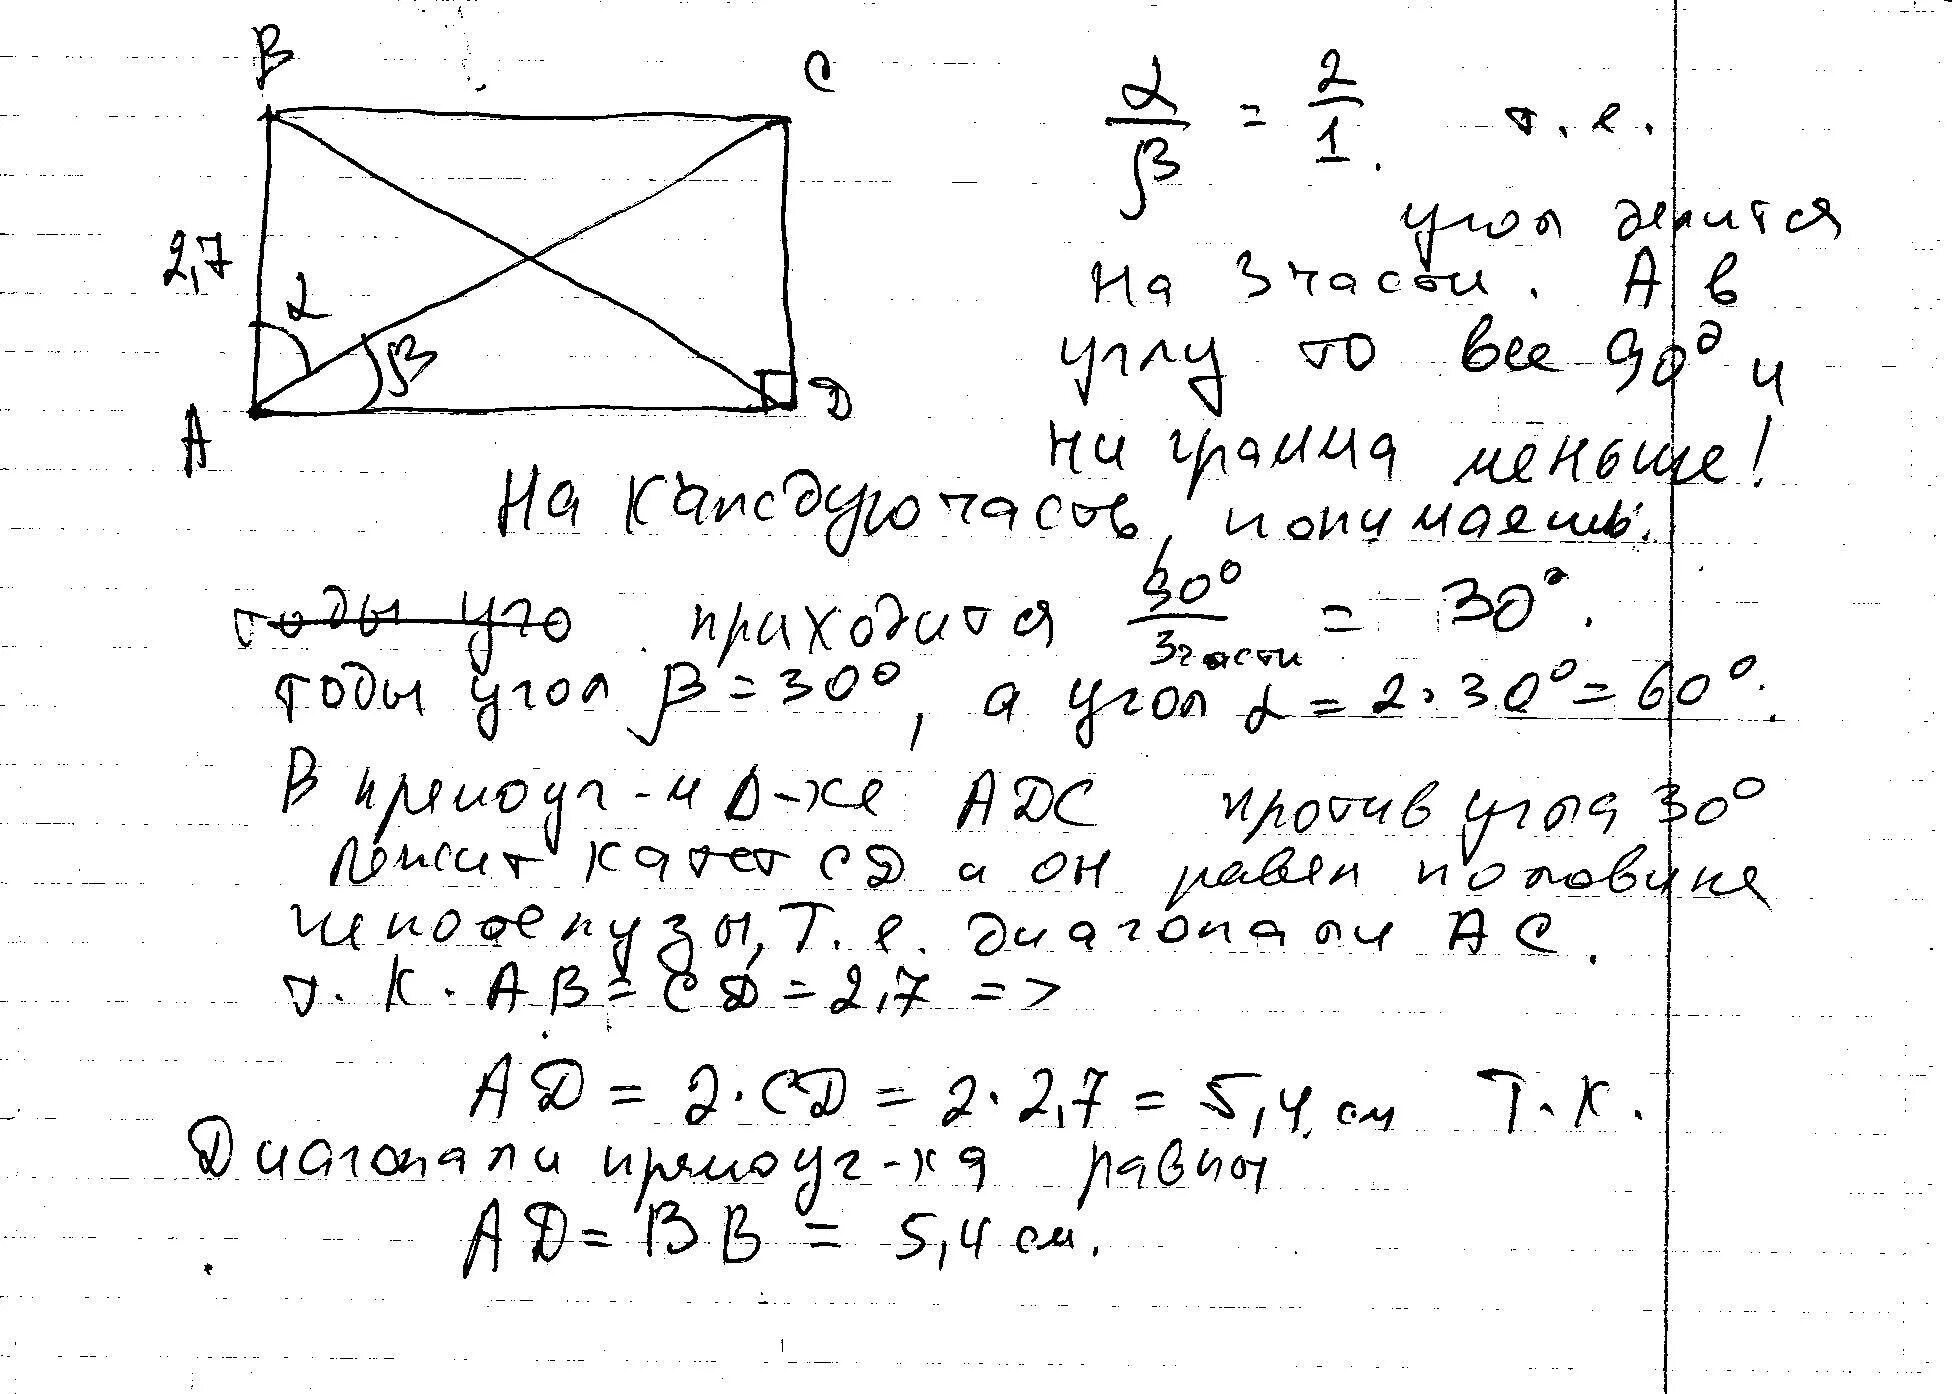 B
C
α/β = 2/1. т.е.
угол делится
2,7
на 3 части. А в
α
углу то все 90° и
β
A
D
ни грамма меньше!
На каждую часть, понимаешь.
тоды уго приходится 90°/3 части = 30°.
тоды угол β = 30°, а угол α = 2·30° = 60°.
В прямоуг-м Δ-ке ADC против угла 30°
лежит катет CD и он равен половине
гипотенузы, т.е. диагонали AC.
т.к. AB = CD = 2,7 =>
AD = 2·CD = 2·2,7 = 5,4 см т.к.
Диагонали прямоуг-ка равны
AD = BB = 5,4 см.